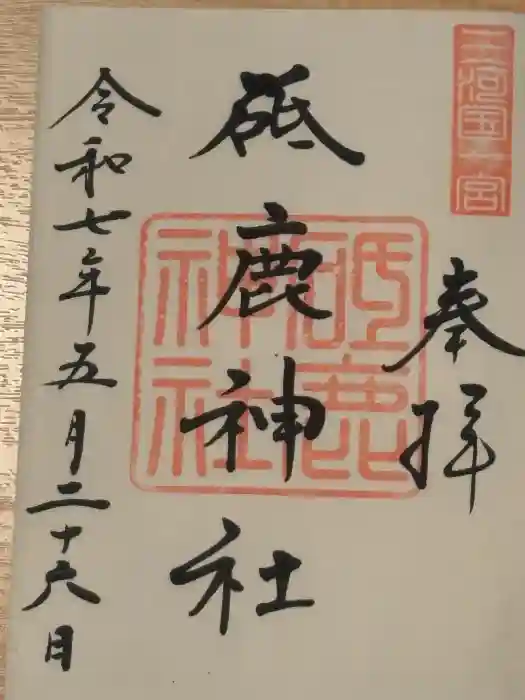 三河国一宮
奉拝
砥鹿神社
砥鹿神社
令和七年五月二十六日